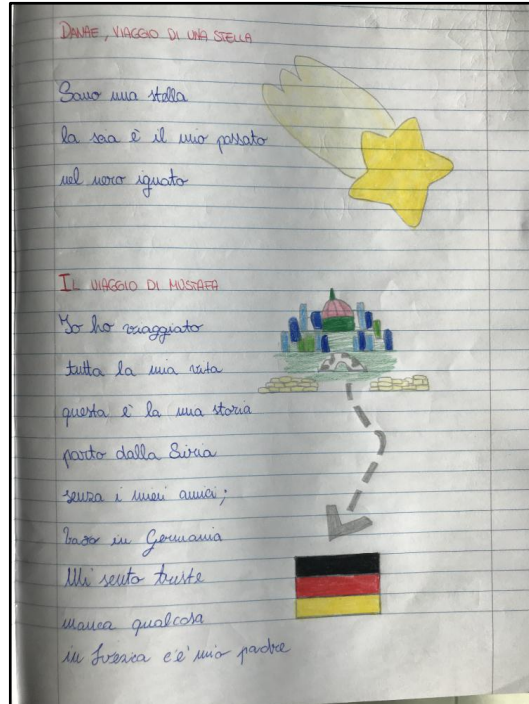 DANAE, VIAGGIO DI UNA STELLA
Sono una stella
la scia è il mio passato
nel nero ignoto
IL VIAGGIO DI MUSTAFA
Io ho viaggiato
tutta la mia vita
questa è la mia storia
parto dalla Siria
senza i miei amici;
vado in Germania
Mi sento triste
manca qualcosa
in Svezia c'è mio padre